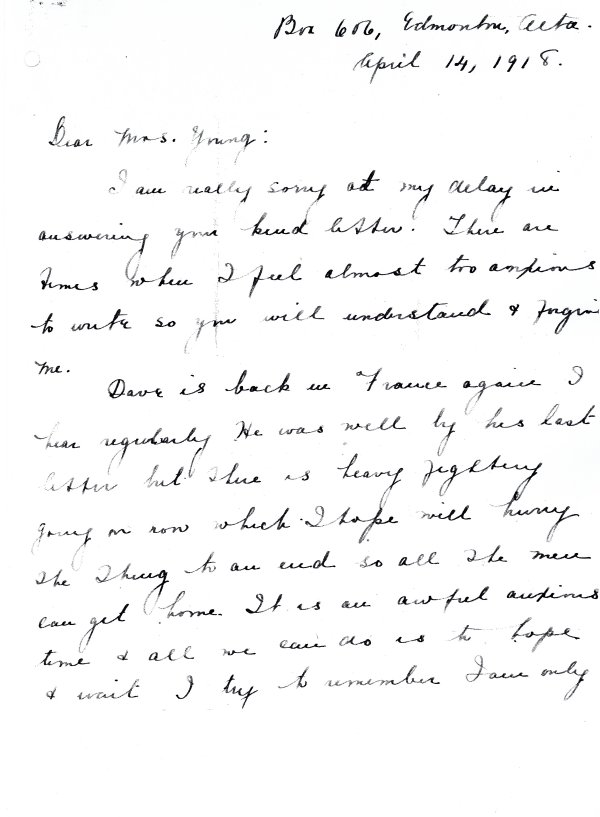 Box 606, Edmonton, Alta.
April 14, 1918.
Dear Mrs. Young:
I am really sorry at my delay in
answering your kind letter. There are
times when I feel almost too anxious
to write so you will understand & forgive
me.
Dave is back in France again I
hear regularly He was well by his last
letter but there is heavy fighting
going on now which I hope will hurry
the thing to an end so all the men
can get home. It is an awful anxious
time & all we can do is to hope
& wait I try to remember I am only